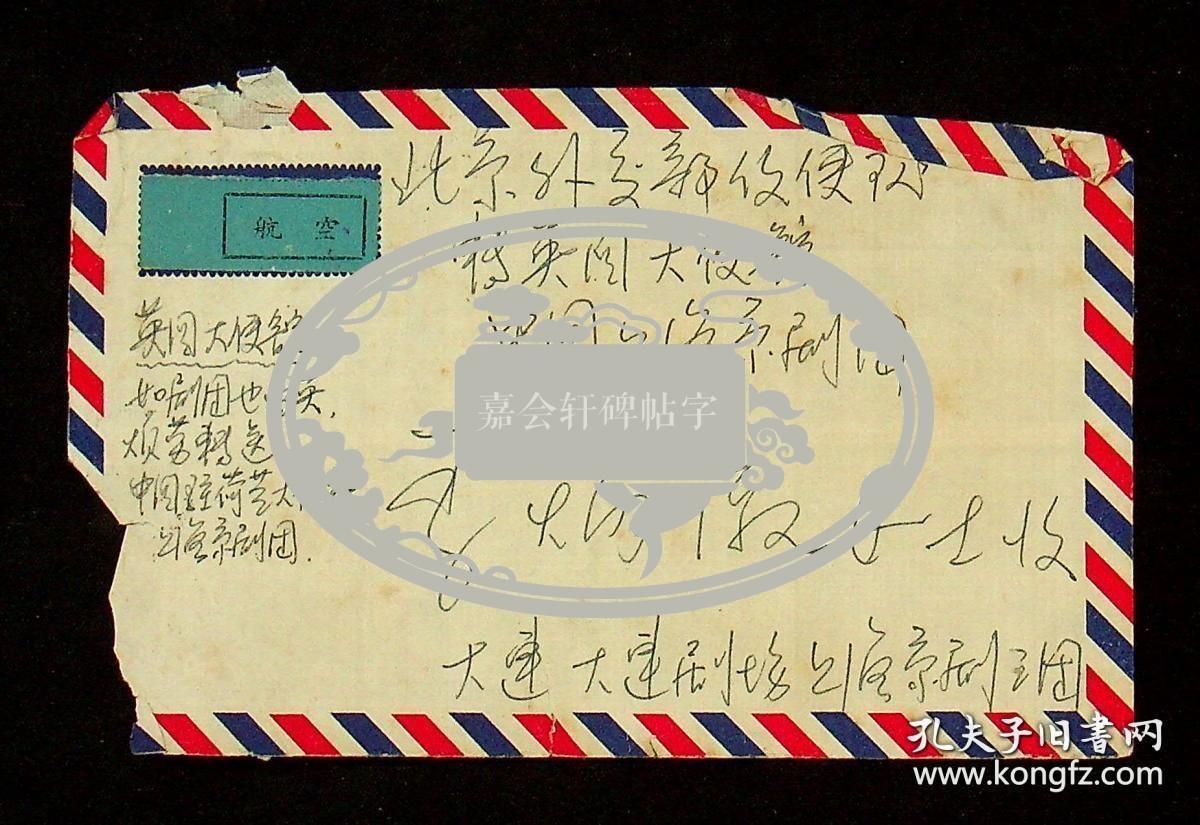 航空
北京外交部信使队
转英国大使馆
海京剧团
英国大使馆
如剧团也
烦劳转送
中国驻荷兰大
上海京剧团.
士收
大连 大连剧场上海京剧三团
嘉会轩碑帖字
孔夫子旧书网
www.kongfz.com